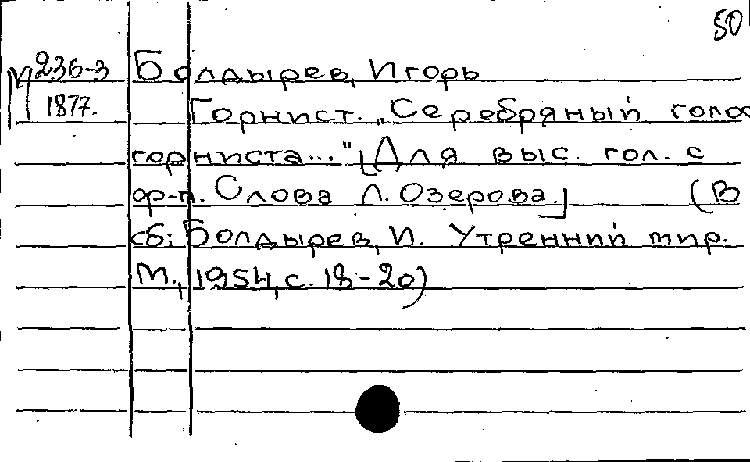 50
М236-3 Болдырев, Игорь
1877. Горнист. „Серебряный голос
горниста..." [Для выс. гол. с
ф-п. Слова Л. Озерова.] (В
сб: Болдырев, И. Утренний мир.
М., 1954, с. 18-20)